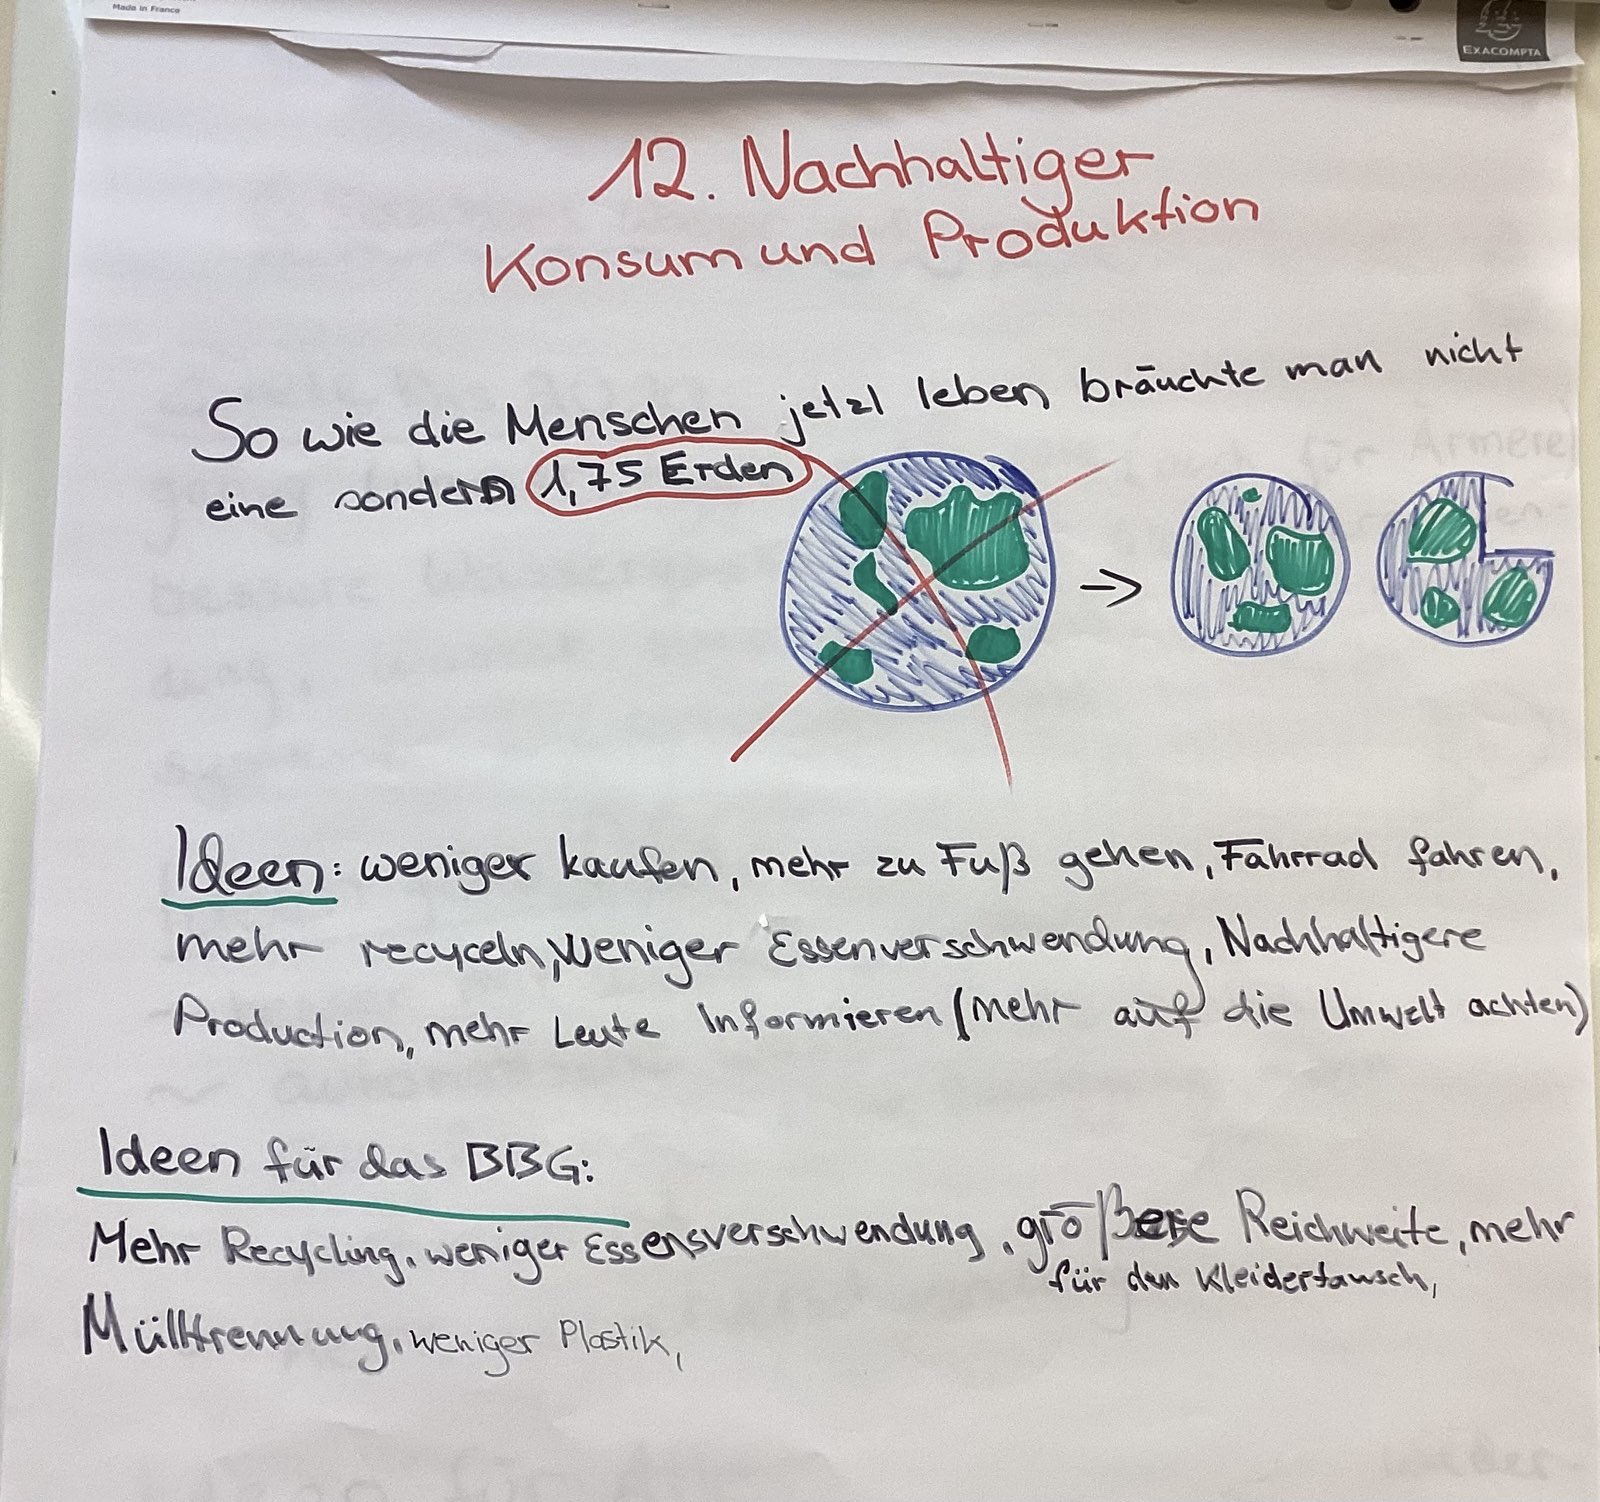 Made in France
EXACOMPTA
12. Nachhaltiger
Konsum und Produktion
So wie die Menschen jetzt leben bräuchte man nicht
eine sondern 1,75 Erden
→
Ideen: weniger kaufen, mehr zu Fuß gehen, Fahrrad fahren,
mehr recyceln, Weniger Essenverschwendung, Nachhaltigere
Production, mehr Leute Informieren (mehr auf die Umwelt achten)
Ideen für das BBG:
Mehr Recycling, weniger Essensverschwendung, größere Reichweite, mehr
für den Kleidertausch,
Mülltrennung, weniger Plastik,